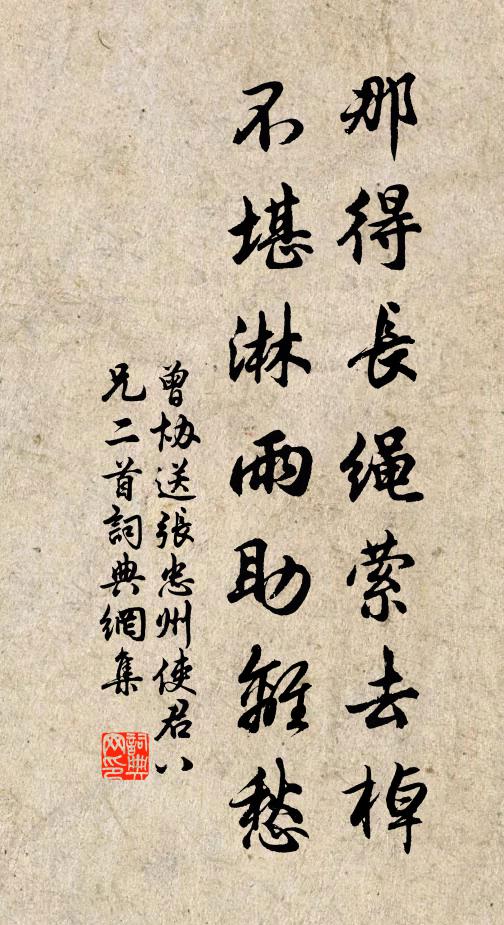 那得長繩縈去棹
不堪淋雨助離愁
曾協送張忠州使君八
兄二首詞典網集
詞典
网印